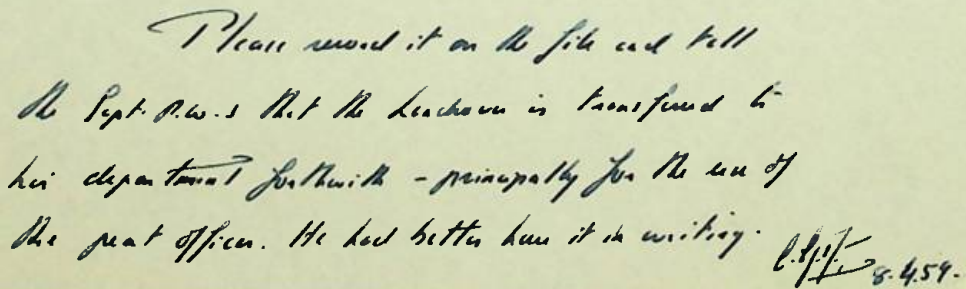 Please record it on the file and tell
the Supt. P.W.s that the Landrover is transferred to
his department forthwith – principally for the use of
the great officer. He had better have it in writing.
8.4.59.